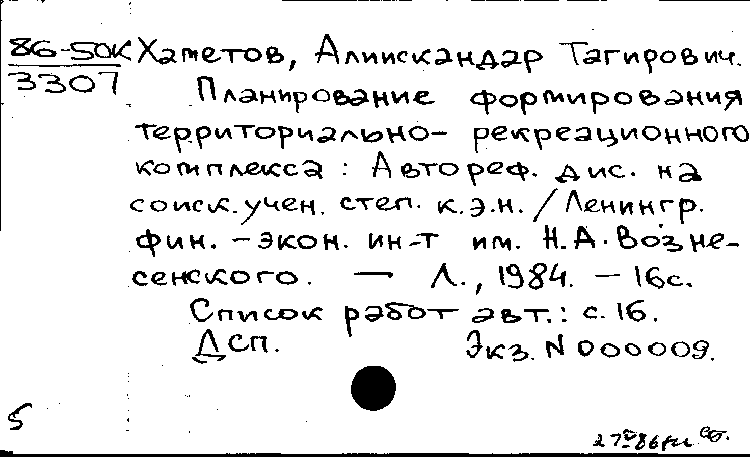 86-50К Хаметов, Алиискандар Тагирович.
3307
Планирование формирования
территориально- рекреационного
комплекса : Автореф. дис. на
соиск. учен. степ. к.э.н. / Ленингр.
фин. - экон. ин-т им. Н.А. Возне-
сенского. — Л., 1984. - 16с.
Список работ авт.: с. 16.
ДСП. Экз. N 000009.
5
27 V 86